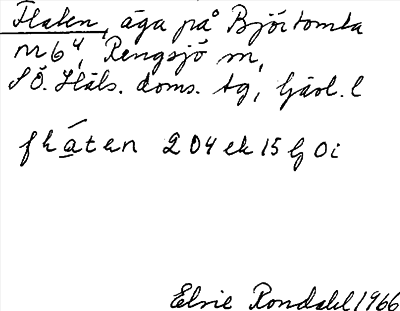 Flaten, äga på Björtomta
nr 6⁴, Rengsjö sn,
SÖ. Häls. doms. tg, Gävl. l
fláten 204 ek 15 G Oi
Elsie Rondahl 1966